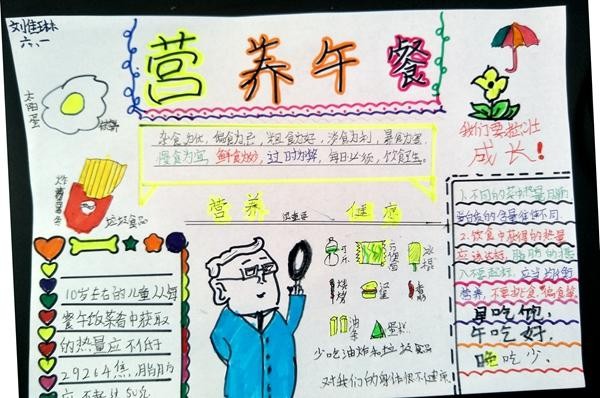 刘佳琳
六、一
营养午餐
太阳蛋
我们要茁壮
成长!
杂食为优,偏食为忌,粗食为好,淡食为利,暴食为害,
慢食为宜,鲜食为妙,过时为弊,每日必须,饮食卫生。
炸薯条
垃圾食品
营养
健康
可乐
方便面
冰棍
烧烤
汉堡
油条
蛋糕
少吃油炸和垃圾食品
对我们的身体很不健康
10岁左右的儿童从每
餐午饭菜肴中获取
的热量应不低于
29264焦,脂肪
应不超过50克
1.不同的菜中热量、脂肪、
蛋白质的含量往往不同.
2.饮食中获得的热量
应达标,脂肪的摄
入不要超标,应当均衡
营养,不要挑食、偏食等.
早吃饱,
午吃好,
晚吃少.